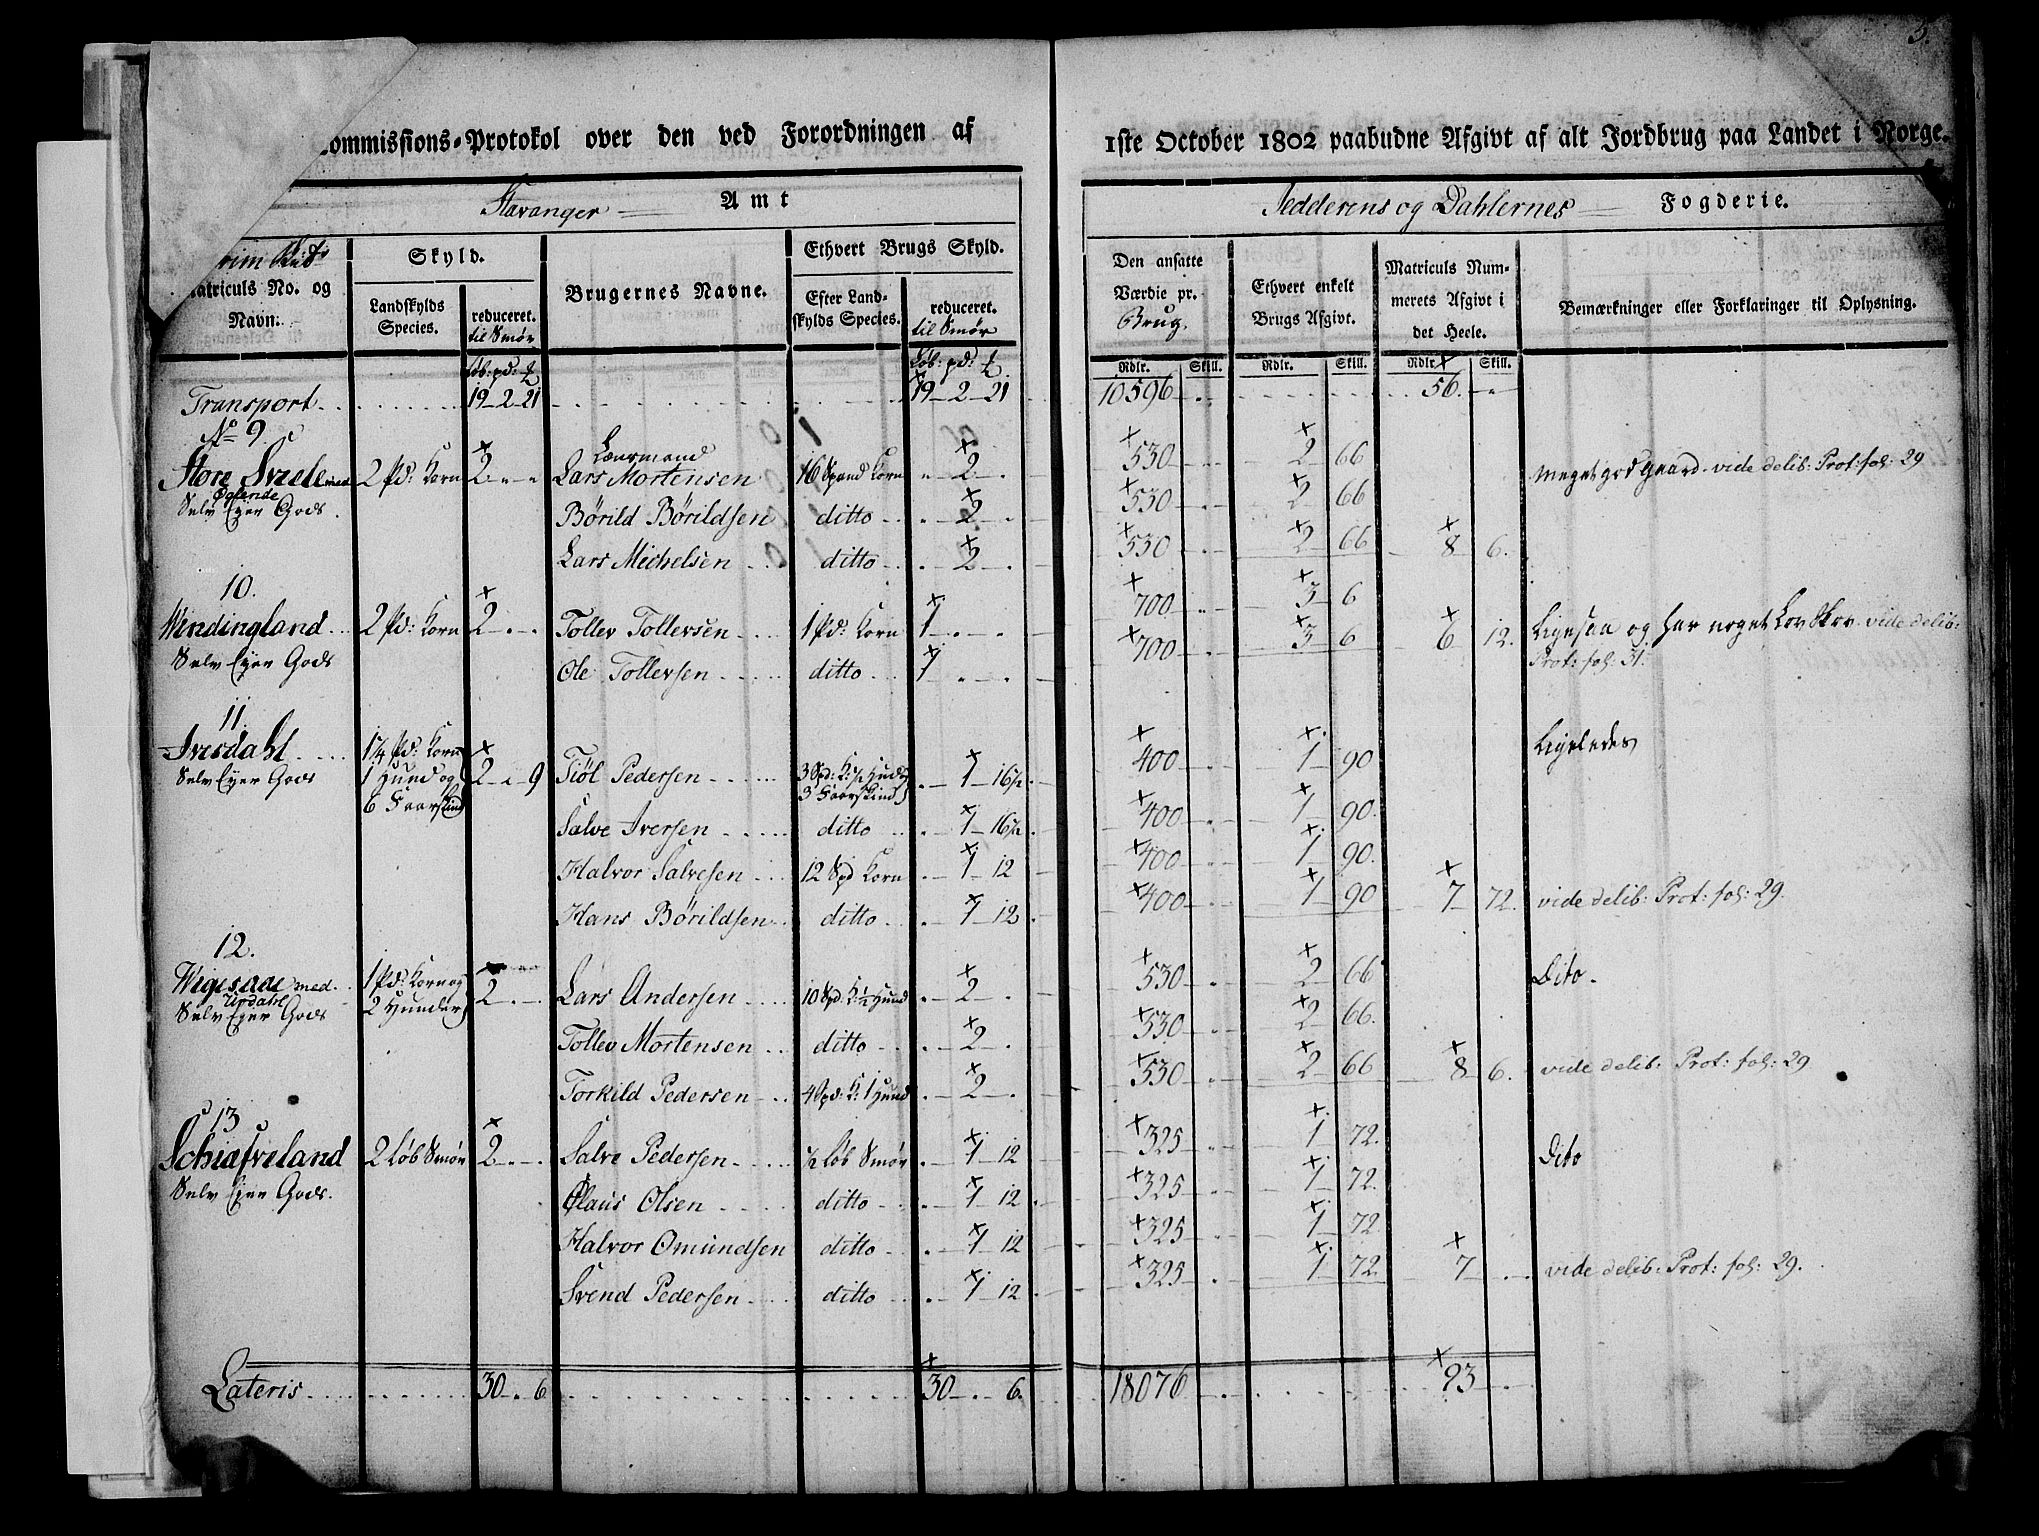 3.
ommissions-Protokol over den ved Forordningen af 1ste October 1802 paabudne Afgivt af alt Jordbrug paa Landet i Norge.
Stavanger Amt
Jedderens og Dahlernes Fogderie.
atriculs No. og Navn:
Skyld.
Landskylds Species.
reduceret. til Smør
Brugernes Navne.
Ethvert Brugs Skyld.
Efter Landskylds Species.
reduceret. til Smør
Den ansatte Værdie pr. Brug.
Ethvert enkelt Brugs Afgivt.
Matriculs Nummerets Afgivt i det Heele.
Bemærkninger eller Forklaringer til Oplysning.
Løb: pd: ℔ Løb: pd: ℔ Rdlr. Skill. Rdlr. Skill. Rdlr. Skill.
Transport 19 - 2 - 21 19 - 2 - 21 10596 56. - "
No 9.
Store Svele med 2 Pd: Korn 2 " " Lænsmand Lars Mortensen 16 Spand Korn " 2 - . 530 2 66 Meget god Gaard. vide delib: Prot: fol: 29
Øglende
Selv Eyer Gods. Børild Børildsen ditto . 2 . 530 2 66
Lars Michelsen ditto . 2 . 530 2 66 8 6.
10.
Windingland 2 Pd: Korn 2 . . Tollev Tollevsen 1 Pd: Korn 1 . . 700 3 6 Ligesaa og har noget Løv Skov. vide delib: Prot: fol: 31.
Selv Eyer Gods Ole Tollevsen ditto 1 . . 700 3 6 6 12.
11.
Ivesdahl 1¼ Pd: Korn 1 Hund og 6 Faarskind 2 . 9 Tiøl Pedersen 3 Spd: K: ½ Hud 3 Faarskind . 1 16½ 400 1 90 Ligeledes
Selv Eyer Gods
Salve Iversen ditto . 1 16½ 400 1 90.
Halvor Salvesen 12 Spd Korn . 1 12 400 1 90.
Hans Børildsen ditto . 1 12. 400 1 90 7 72. vide delib: Prot: fol: 29.
12.
Wigesaae med 1 Pd: Korn og 2 Hunder 2 . Lars Andersen 10 Spd: K: ½ Hund . 2 . 530 2 66 Dito.
Urdahl
Selv Eyer Gods Tollev Mortensen ditto . 2 . 530 2 66.
Torkild Pedersen 4 Spd: K: 1 Hund . 2 . 530 2 66 8 6. vide delib: Prot: fol: 29
13
Schiæfveland 2 Løb Smør 2 . . Salve Pedersen ½ Løb Smør . 1 12 325 1 72. Dito
Selv Eyer Gods. Claus Olsen ditto . 1 12. 325 1 72.
Halvor Omundsen ditto . 1 12 325 1 72
Svend Pedersen ditto . 1 12. 325 1 72. 7 . . vide delib: Prot: fol: 29.
Lateris 30 . 6 30 . 6. 18076 93